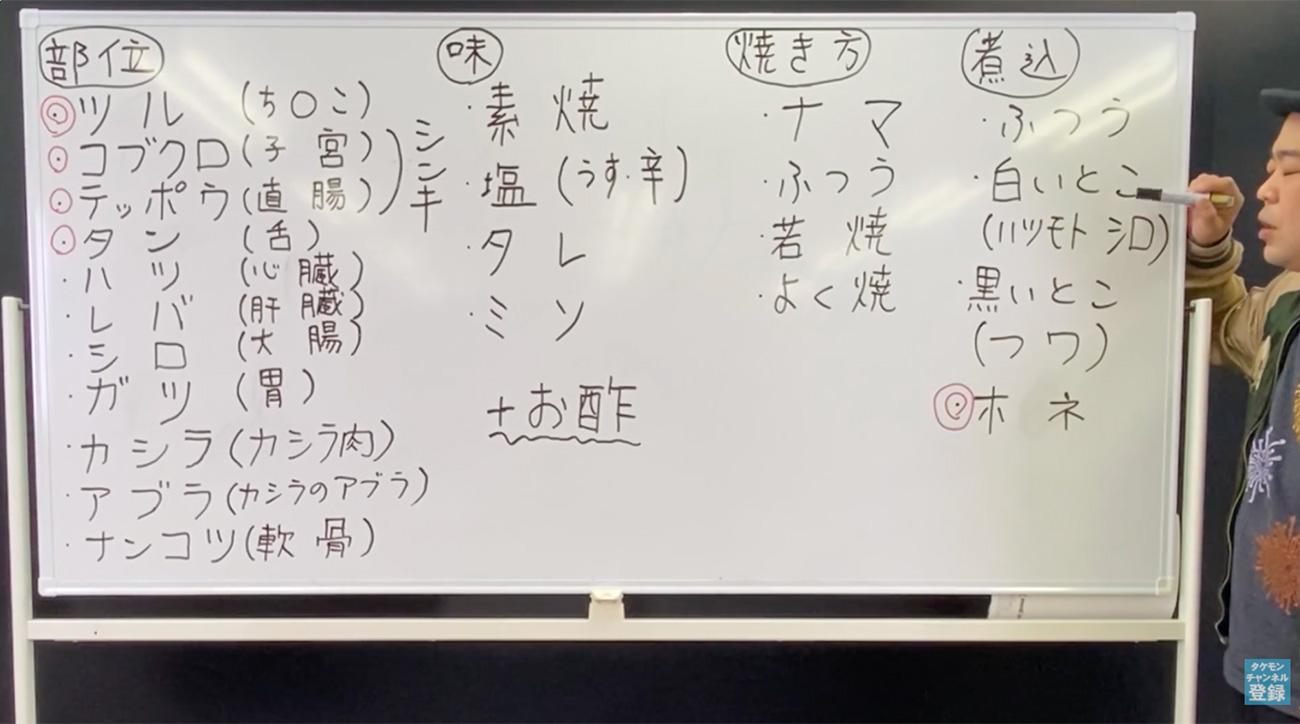 部位
◎ツル (ち○こ)
⊙コブクロ(子宮)
⊙テッポウ(直腸)
⊙タン (舌)
シンキ
・ハツ (心臓)
・レバ (肝臓)
・シロ (大腸)
・ガツ (胃)
・カシラ(カシラ肉)
・アブラ(カシラのアブラ)
・ナンコツ(軟骨)
味
・素焼
・塩 (うす・辛)
・タレ
・ミソ
+お酢
焼き方
・ナマ
・ふつう
・若焼
・よく焼
煮込
・ふつう
・白いとこ
(ハツモト シロ)
・黒いとこ
(フワ)
◎ホネ
タケモン
チャンネル
登録